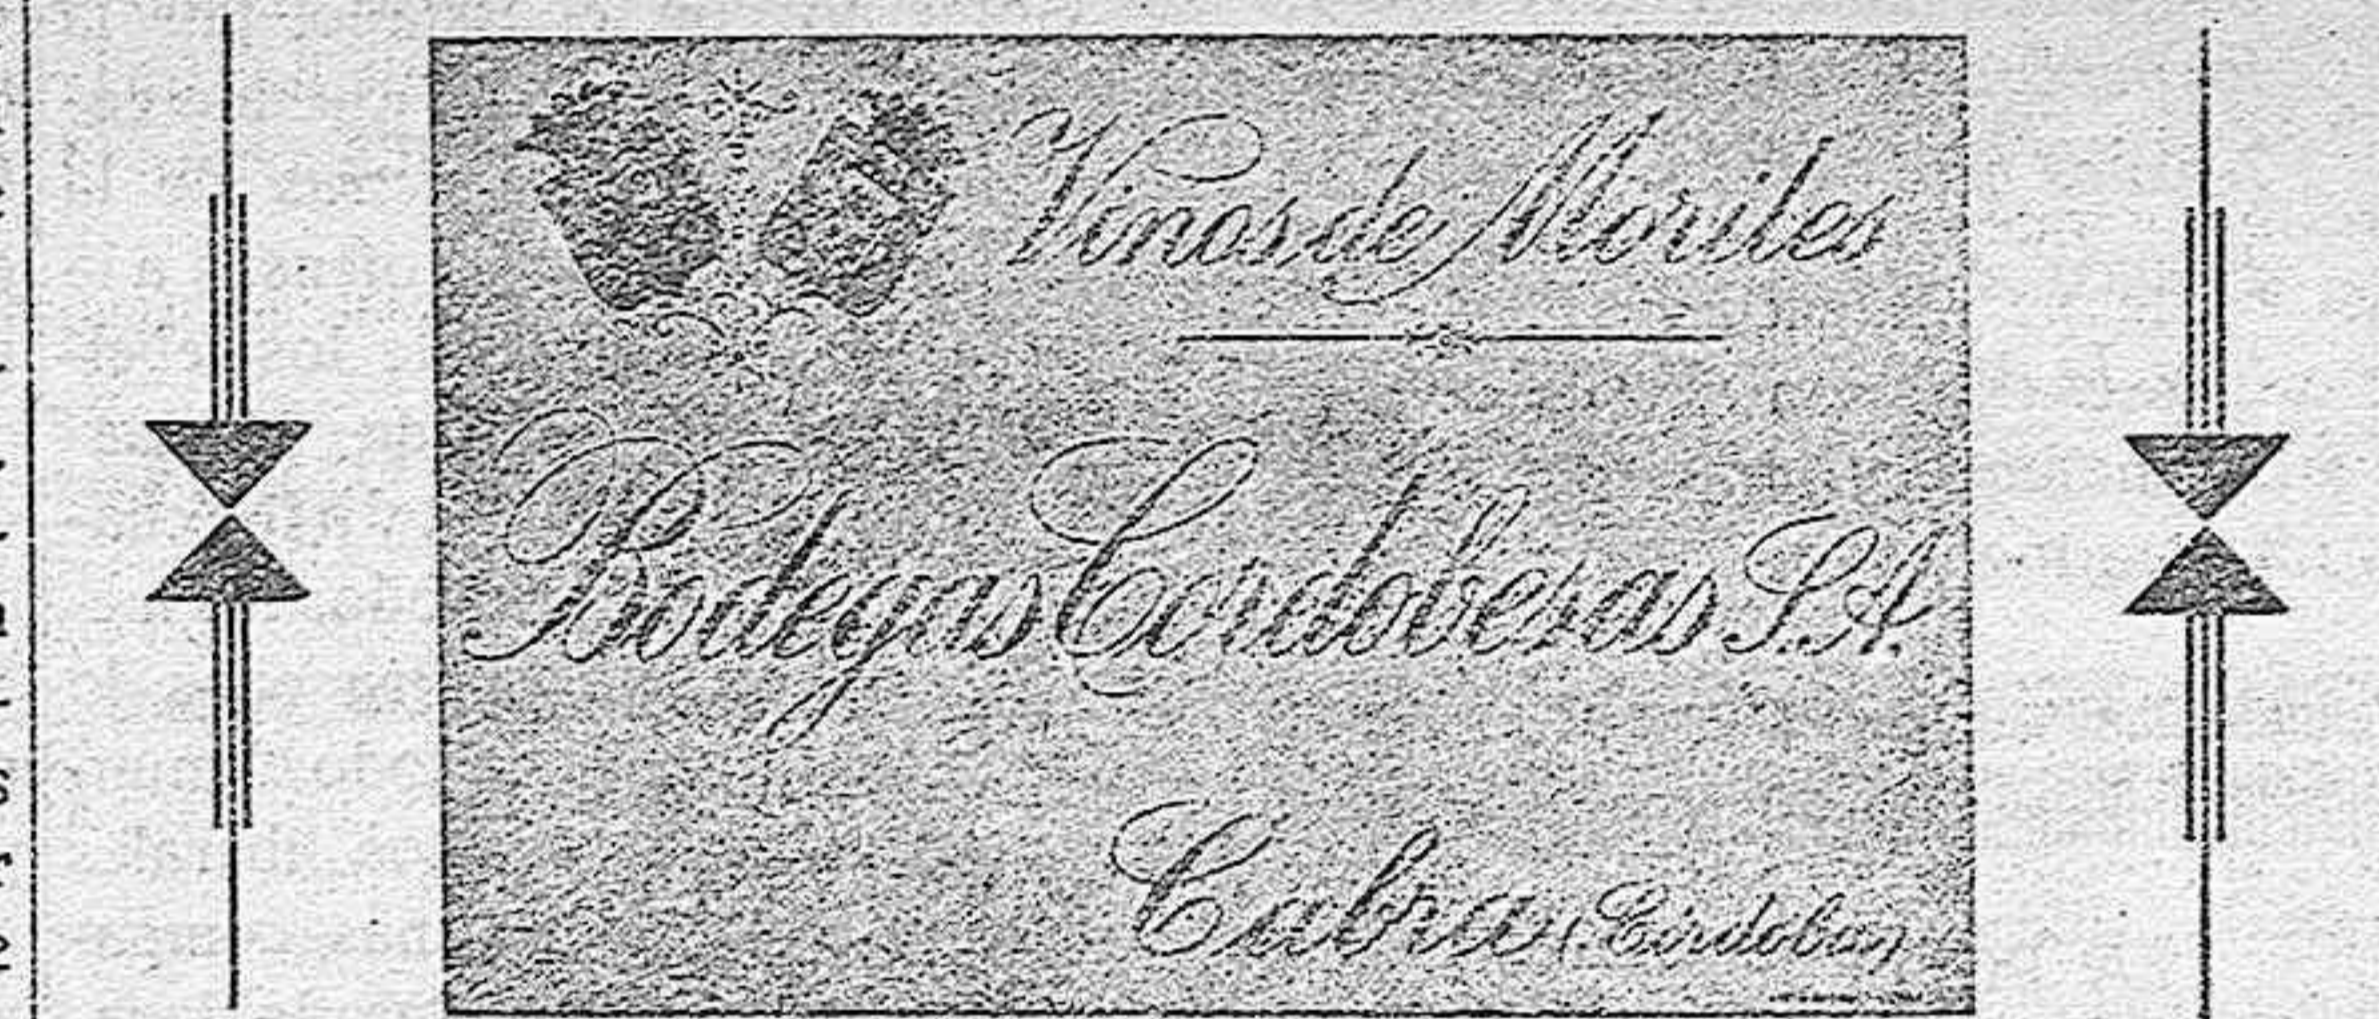 Vinos de Moriles
Bodegas Cordobesas S.A.
Cabra (Córdoba)